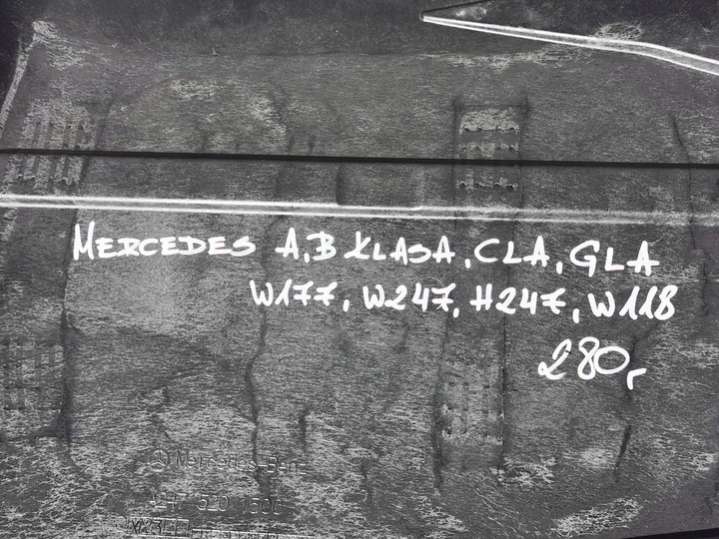 MERCEDES A, B KLASA, CLA, GLA
W177, W247, H247, W118
280,-
Mercedes-Benz